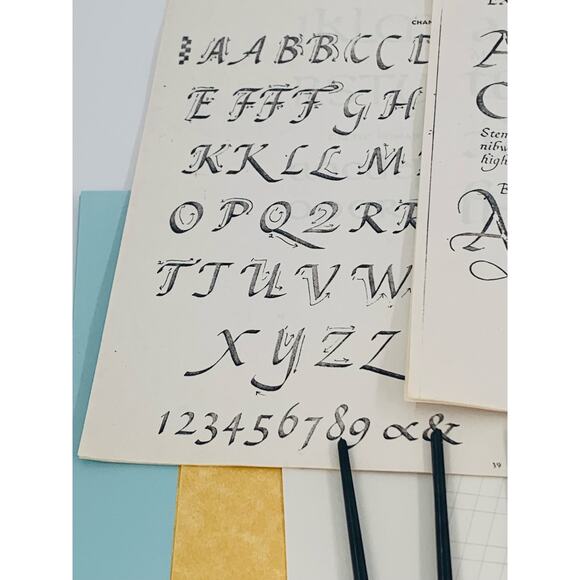 CHAN
A A B B C C D
E F F F G H
K K L L M
O P Q 2 R R
T T U V W
X Y Z Z
1 2 3 4 5 6 7 8 9 & &
39
A
C
Stem
nibw
high
A